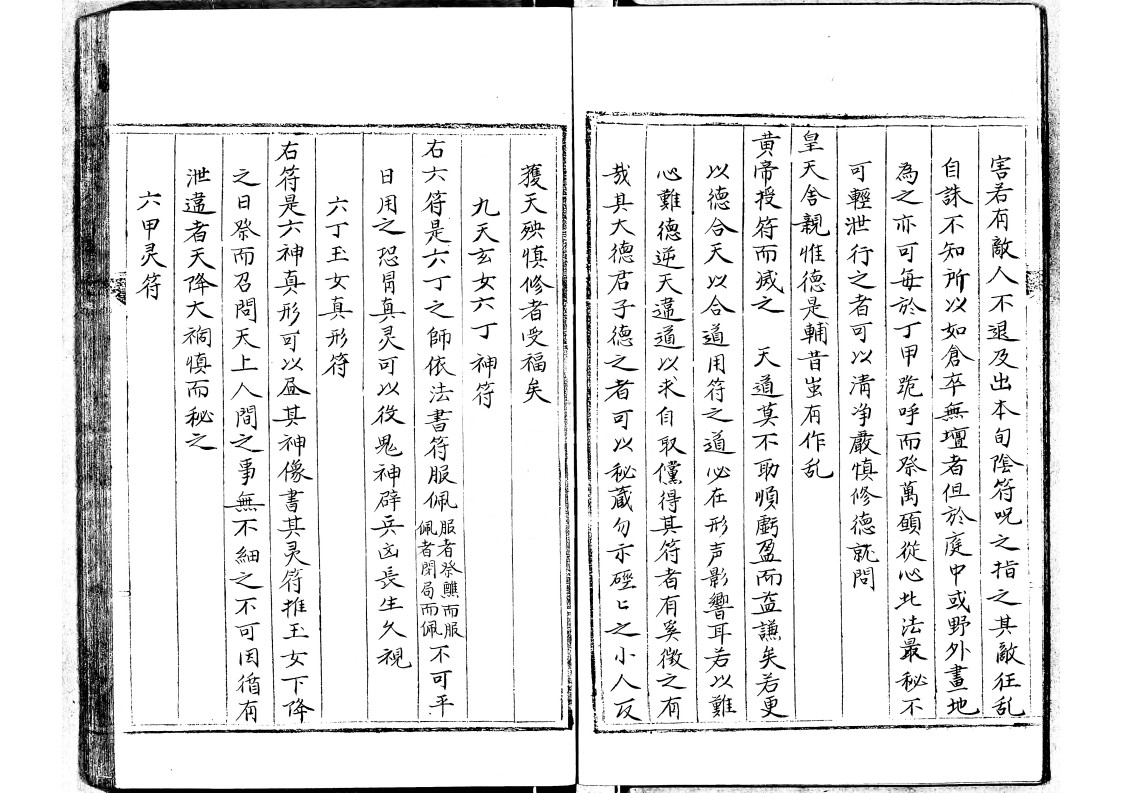 害若有敵人不退及出本旬陰符呪之指之其敵狂乱
自誅不知所以如倉卒無壇者但於庭中或野外畫地
為之亦可每於丁甲跪呼而祭萬願従心此法最秘不
可輕泄行之者可以清净嚴慎修德就問
皇天舍親惟德是輔昔蚩有作乱
黄帝授符而滅之　天道莫不助順虧盈而益謙矣若更
以德合天以合道用符之道必在形声影響耳若以難
心難德逆天違道以求自取儻得其符者有奚徴之有
哉其大德君子德之者可以秘蔵勿示硜〻之小人反
獲天殃慎修者受福矣
九天玄女六丁神符
右六符是六丁之師依法書符服佩服者祭醮而服佩者閉局而佩不可平
日用之恐冐真灵可以役鬼神辟兵凶長生久視
六丁玉女真形符
右符是六神真形可以畫其神像書其灵符推玉女下降
之日祭而召問天上人間之事無不細之不可因循有
泄違者天降大禍慎而秘之
六甲灵符